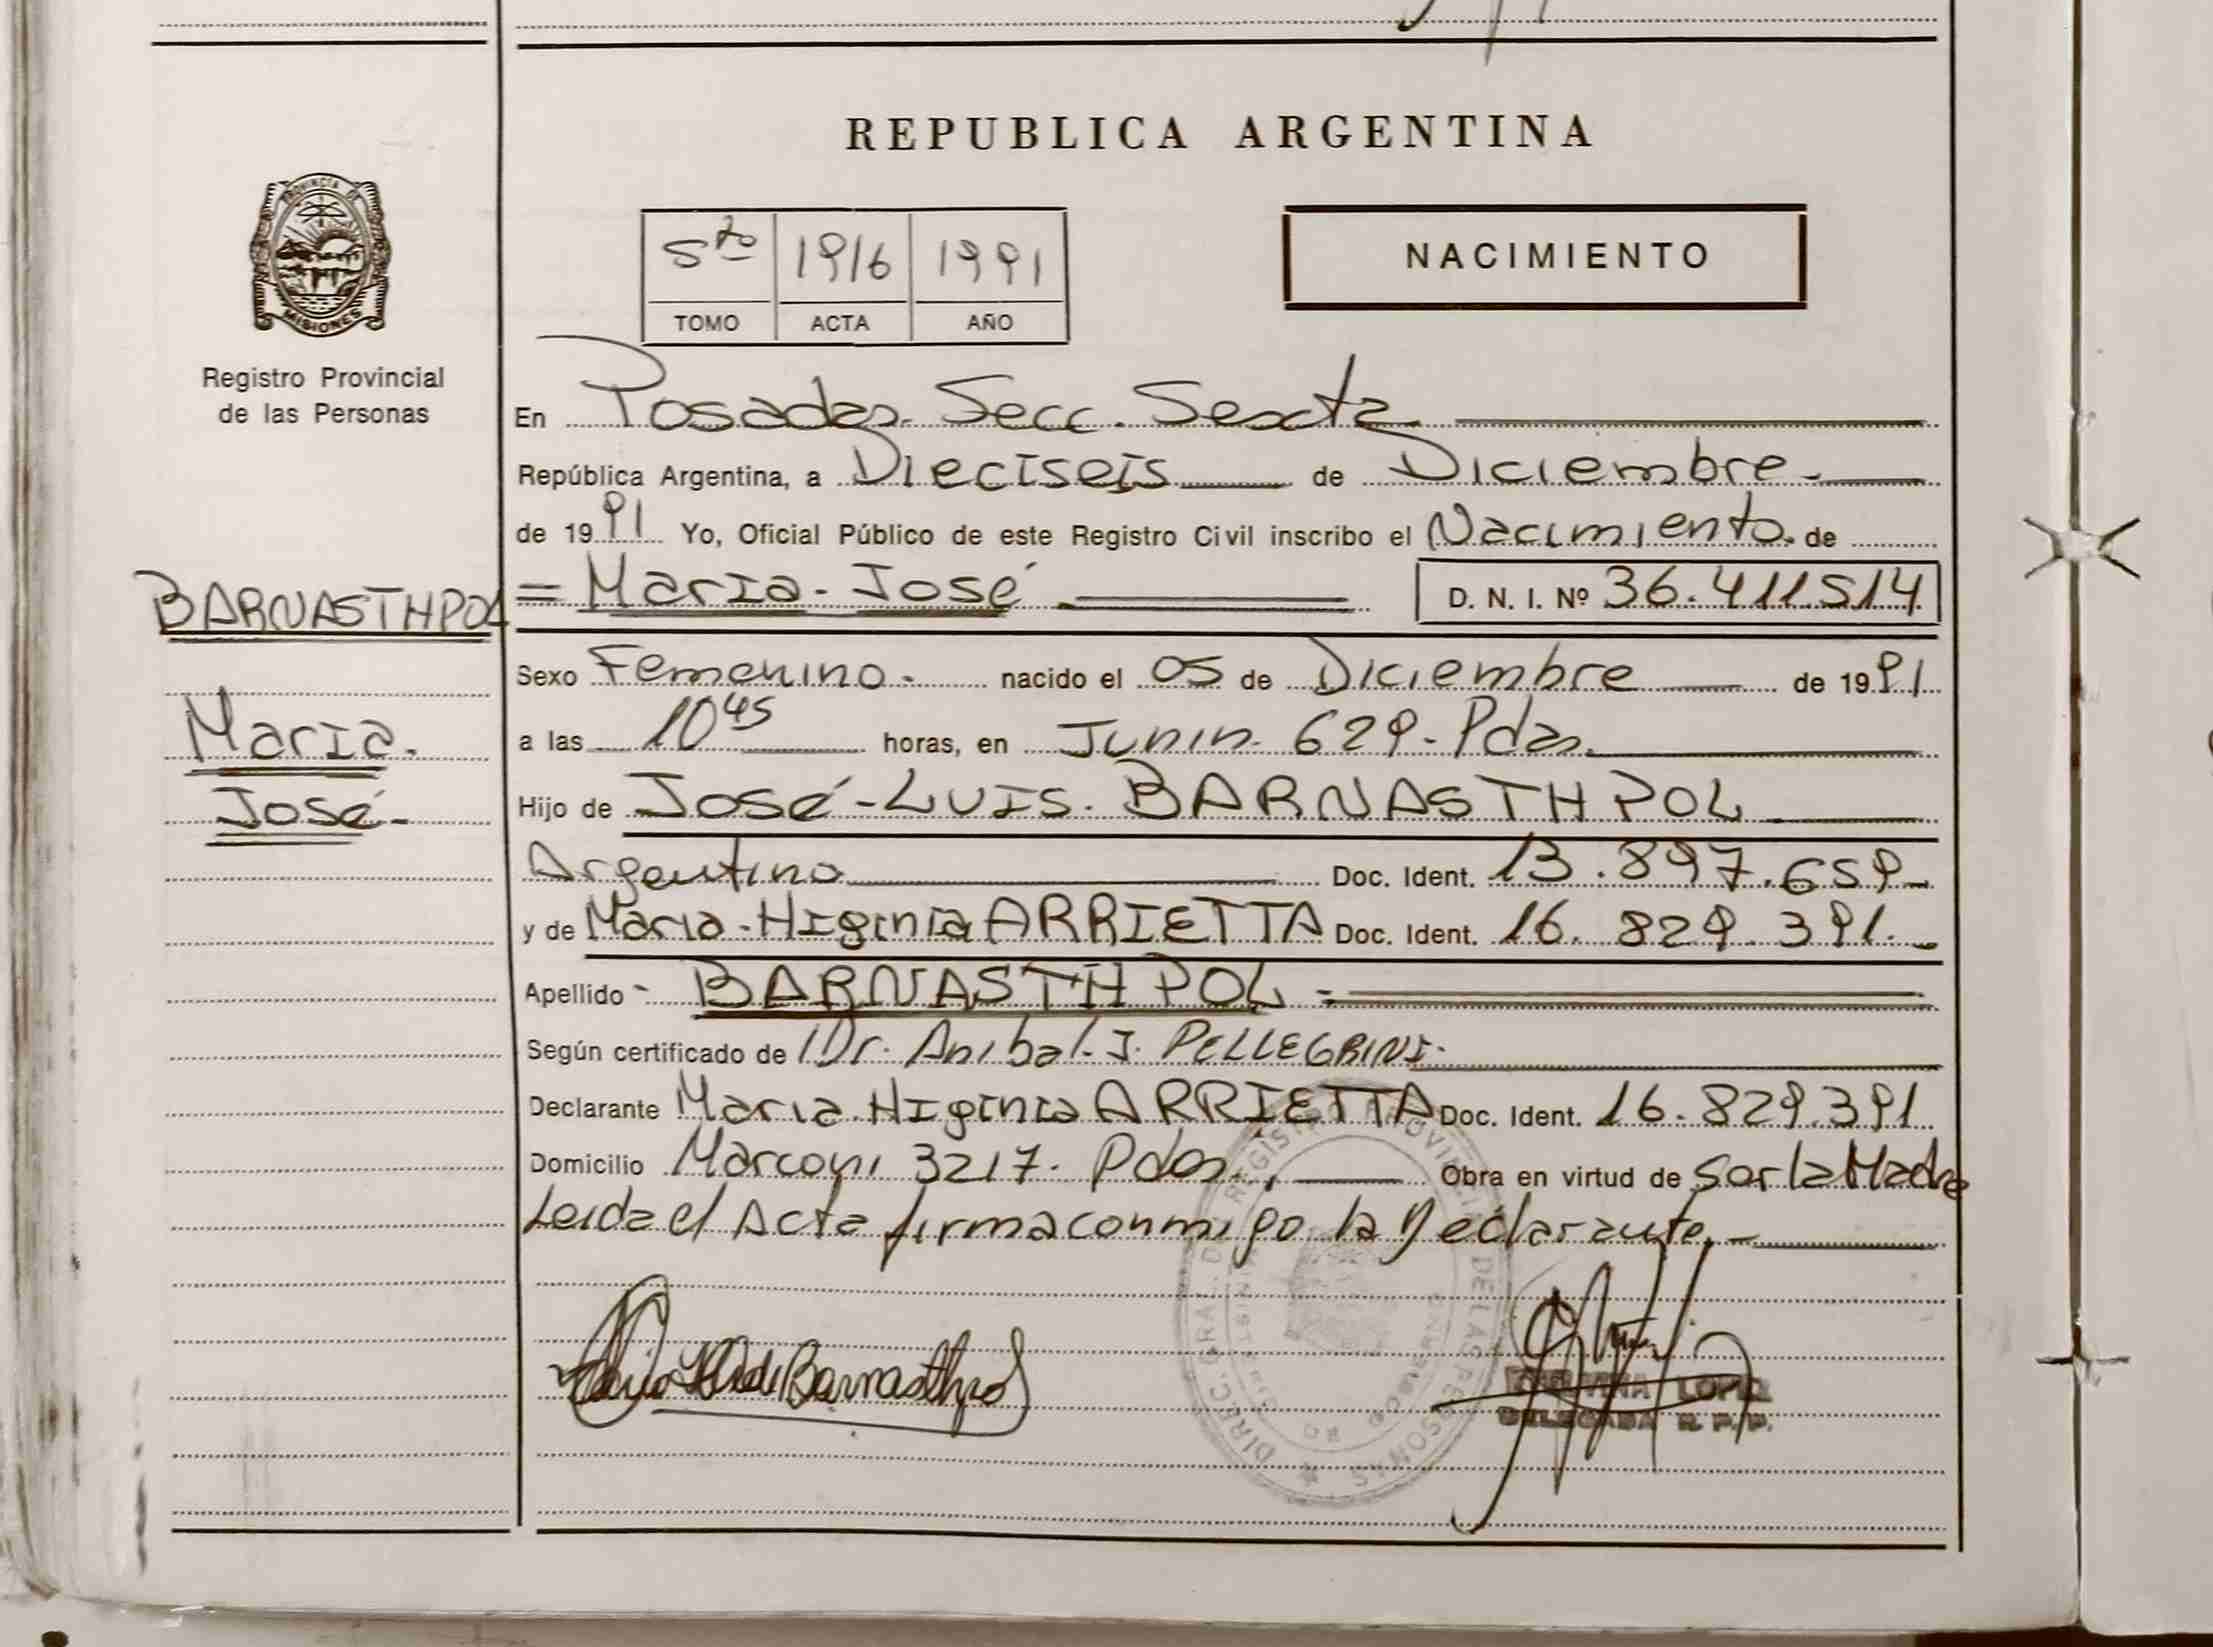 REPUBLICA ARGENTINA
PROVINCIA DE
MISIONES
Registro Provincial
de las Personas
5to 1916 1991
TOMO ACTA AÑO
NACIMIENTO
En Posadas. Secc. Sexta
República Argentina, a Dieciseis de Diciembre.
de 1991 Yo, Oficial Público de este Registro Civil inscribo el Nacimiento. de
BARNASTHPOL
Maria.
José-
= Maria. José D. N. I. Nº 36.411.514
Sexo Femenino. nacido el 05 de Diciembre de 1991
a las 10 45 horas, en Junin. 629. Pdas.
Hijo de José-Luis. BARNASTHPOL
Argentino Doc. Ident. 13.897.659-
y de Maria-Higinia ARRIETTA Doc. Ident. 16. 829. 391.-
Apellido - BARNASTHPOL -
Según certificado de Dr. Anibal. J. PELLEGRINI.
Declarante Maria Higinia ARRIETTA Doc. Ident. 16.829.391
Domicilio Marconi 3217. Pdas. Obra en virtud de ser la Madre
Leida el Acta firma conmigo la Declarante.-
DIREC. GRAL. DEL REGISTRO PROVINCIAL DE LAS PERSONAS
de Barnasthpol
LOPEZ
DELEGADA R. P. P.